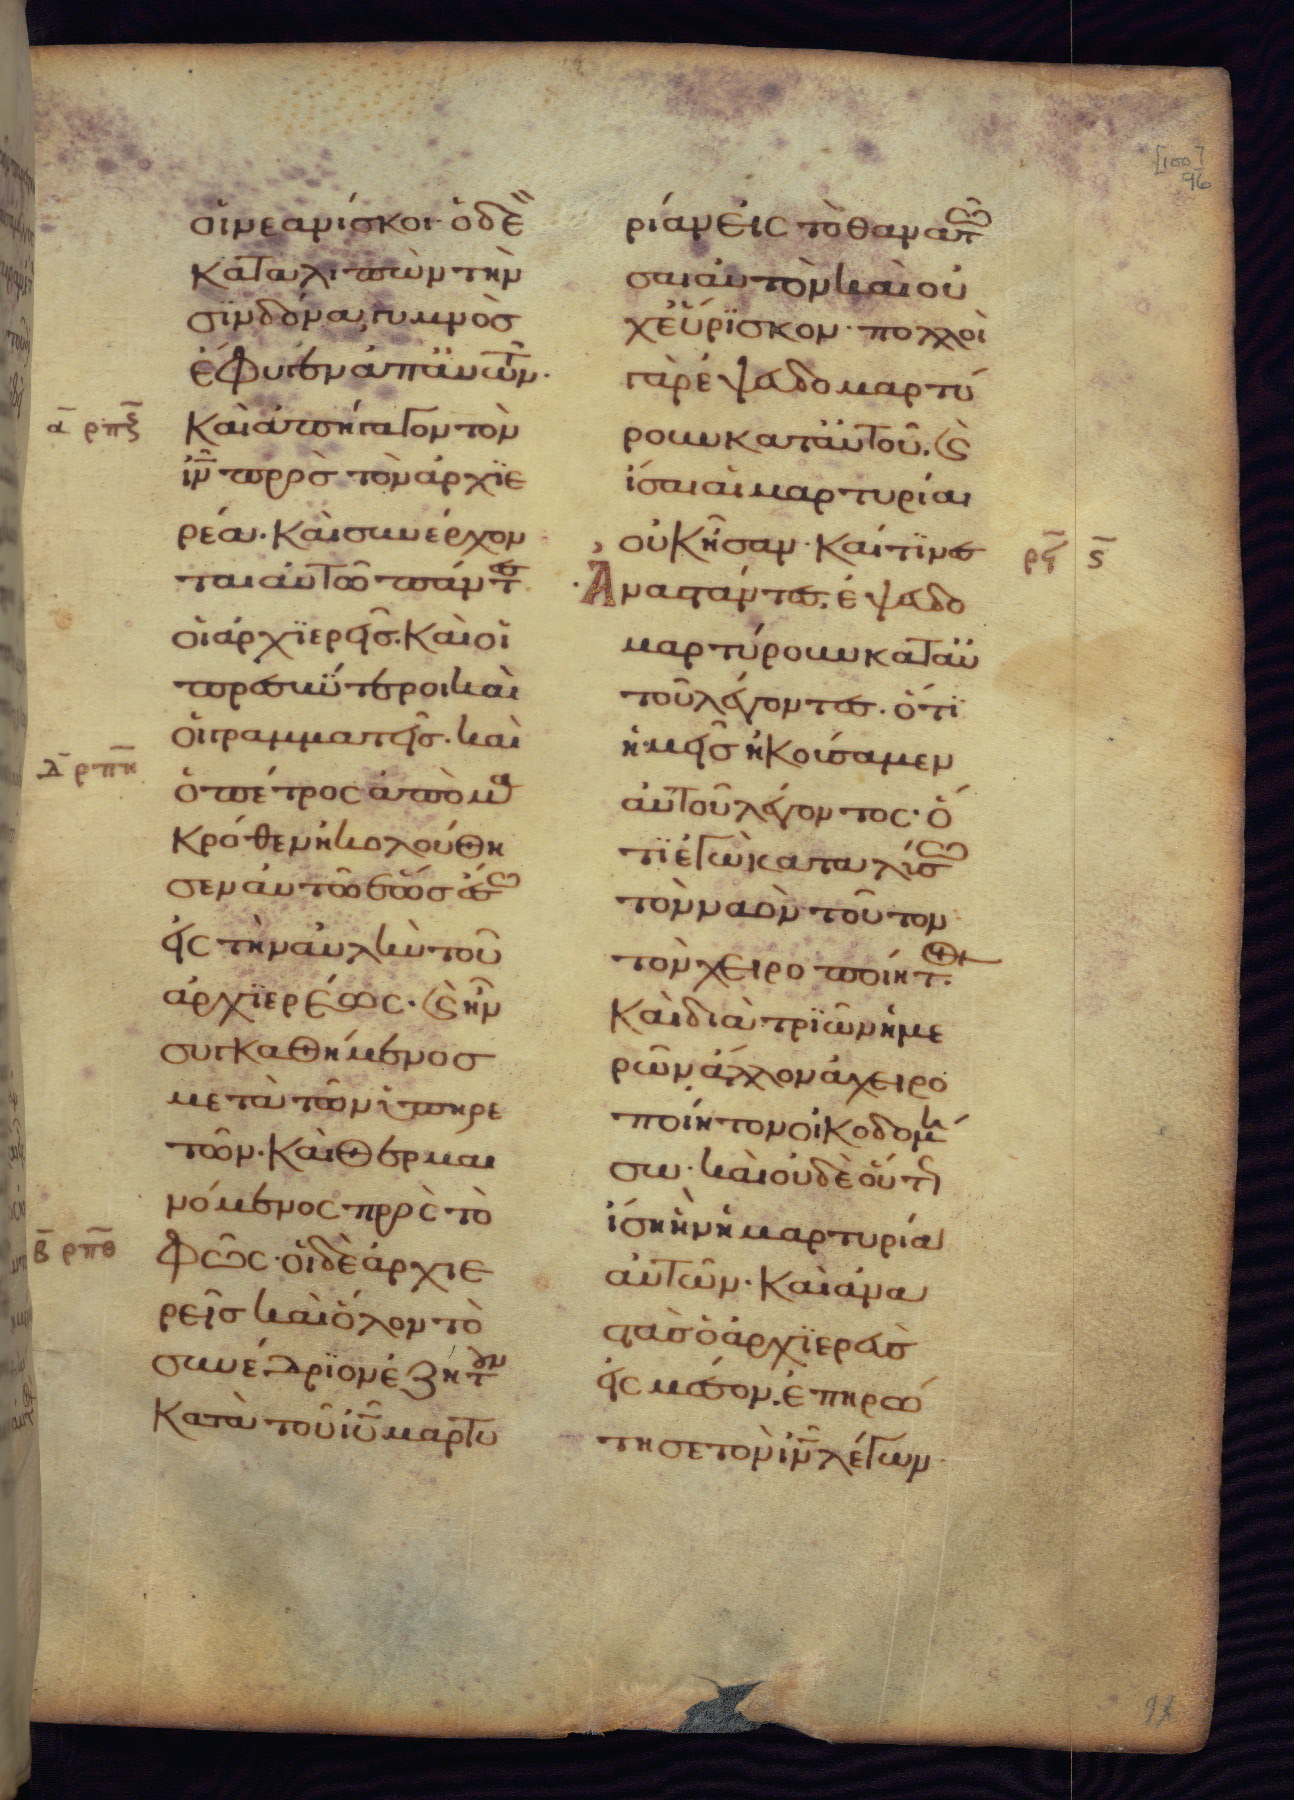 [100]
96
οἱ νεανίσκοι· ὁ δὲ
καταλιπὼν τὴν
σϊνδόνα, γυμνὸς
ἔφυγεν ἀπ' ἀυτῶν·
α ρπξ
Καὶ ἀπήγαγον τὸν
ιν πρὸς τὸν ἀρχϊε
ρέα· Καὶ συνέρχον
ται αυτῶ πάντες
οἱ ἀρχϊερεῖς· Καὶ οἱ
πρεσβύτεροι καὶ
οἱ γραμματεῖς· καὶ
δ ρπη
ὁ πέτρος ἀπὸ μα
κρόθεν ἠκολούθη
σεν ἀυτῶ ἕως ἔσω
εἰς τὴν ἀυλὴν τοῦ
ἀρχϊερέως· ϗ ἦν
συγκαθήμενος
μετὰ τῶν ὑπηρε
τῶν· Καὶ θερμαι
νόμενος πρὸς τὸ
β ρπθ
φῶς· ὁι δὲ ἀρχιε
ρεῖς καὶ ὅλον τὸ
συνέδρϊον ἐζήτουν
κατὰ τοῦ ιυ μαρτυ
ρίαν εἰς τὸ θανατῶ
σαι ἀυτὸν καὶ οὐ
χ εὕρϊσκον· πολλοὶ
γὰρ ἐψευδομαρτύ
ρουν κατ' ἀυτοῦ. ϗ
ἴσαι αἱ μαρτυρίαι
οὐκ ἦσαν· Καί τϊνες
ρϟ ς
Ἀναστάντες· ἐψευδο
μαρτύρουν κατ' αυ
τοῦ λέγοντες· ὅτϊ
ἡμεῖς ἠκούσαμεν
ἀυτοῦ λέγοντος· ὅ
τϊ ἐγὼ καταλύσω
τὸν ναὸν τοῦτον
τὸν χειροποίητον·
Καὶ διὰ τρϊῶν ἡμε
ρῶν ἄλλον ἀχειρο
ποίητον οἰκοδομή
σω· καὶ οὐδὲ οὕτως
ἴση ἦν ἡ μαρτυρία
ἀυτῶν· Καὶ ἀνα
στὰς ὁ ἀρχϊερεὺς
εἰς μέσον. ἐπηρώ
τησε τὸν ιν λέγων·